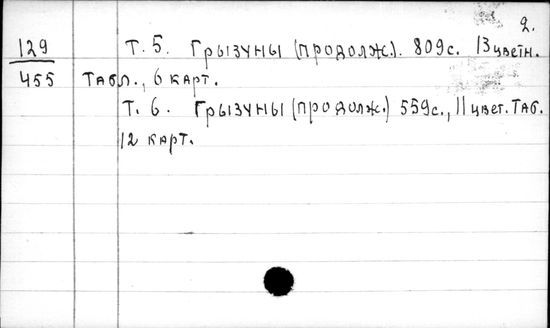 2.
129 Т. 5. Грызуны (продолж). 809с. 13 цветн.
455 табл., 6 карт.
Т. 6. Грызуны (продолж.) 559с., 11 цвет. таб.
12 карт.